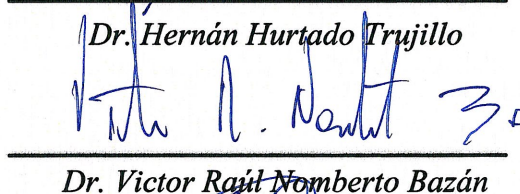 Dr. Hernán Hurtado Trujillo
Dr. Victor Raúl Nomberto Bazán